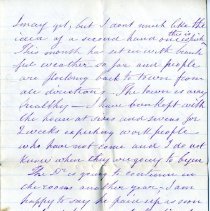 I may yet, but I dont much like the
idea of a second hand one which
this is
This month has set in with beauti
ful weather so far and people
are flocking back to town from
all directions – The town is very
healthy – I have been kept with
the house at sixes and sevens for
2 weeks expecting work people
who have not come and I do not
know when they are going to begin
The Dr is going to continue in
the rooms another year – I am
happy to say he pays up is som